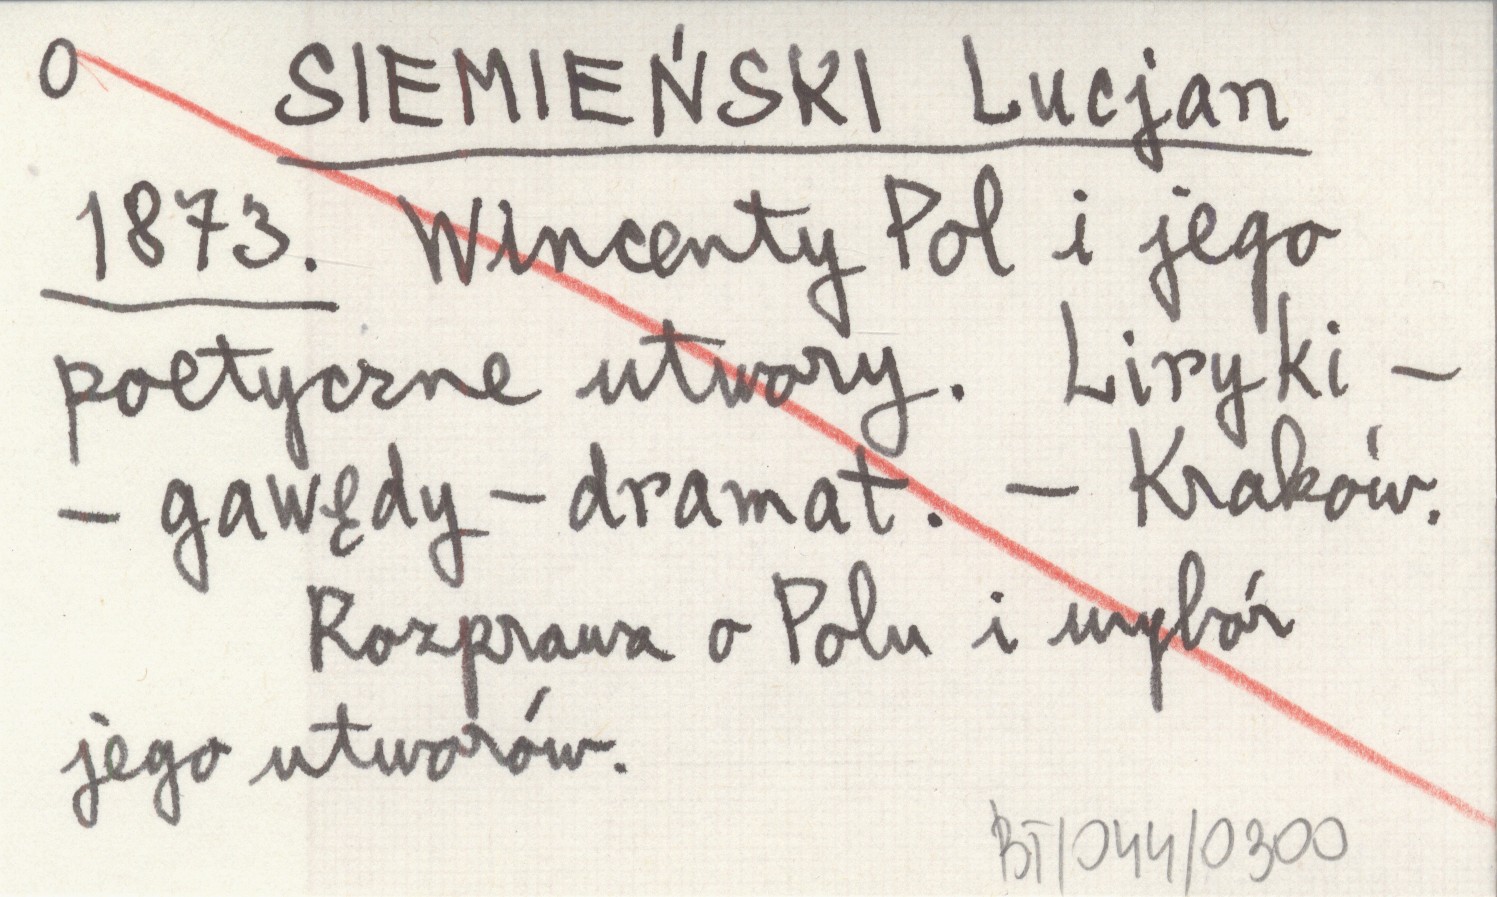 0 SIEMIEŃSKI Lucjan
1873. Wincenty Pol i jego
poetyczne utwory. Liryki -
- gawędy - dramat. - Kraków.
Rozprawa o Polu i wybór
jego utworów.
BT/044/0300